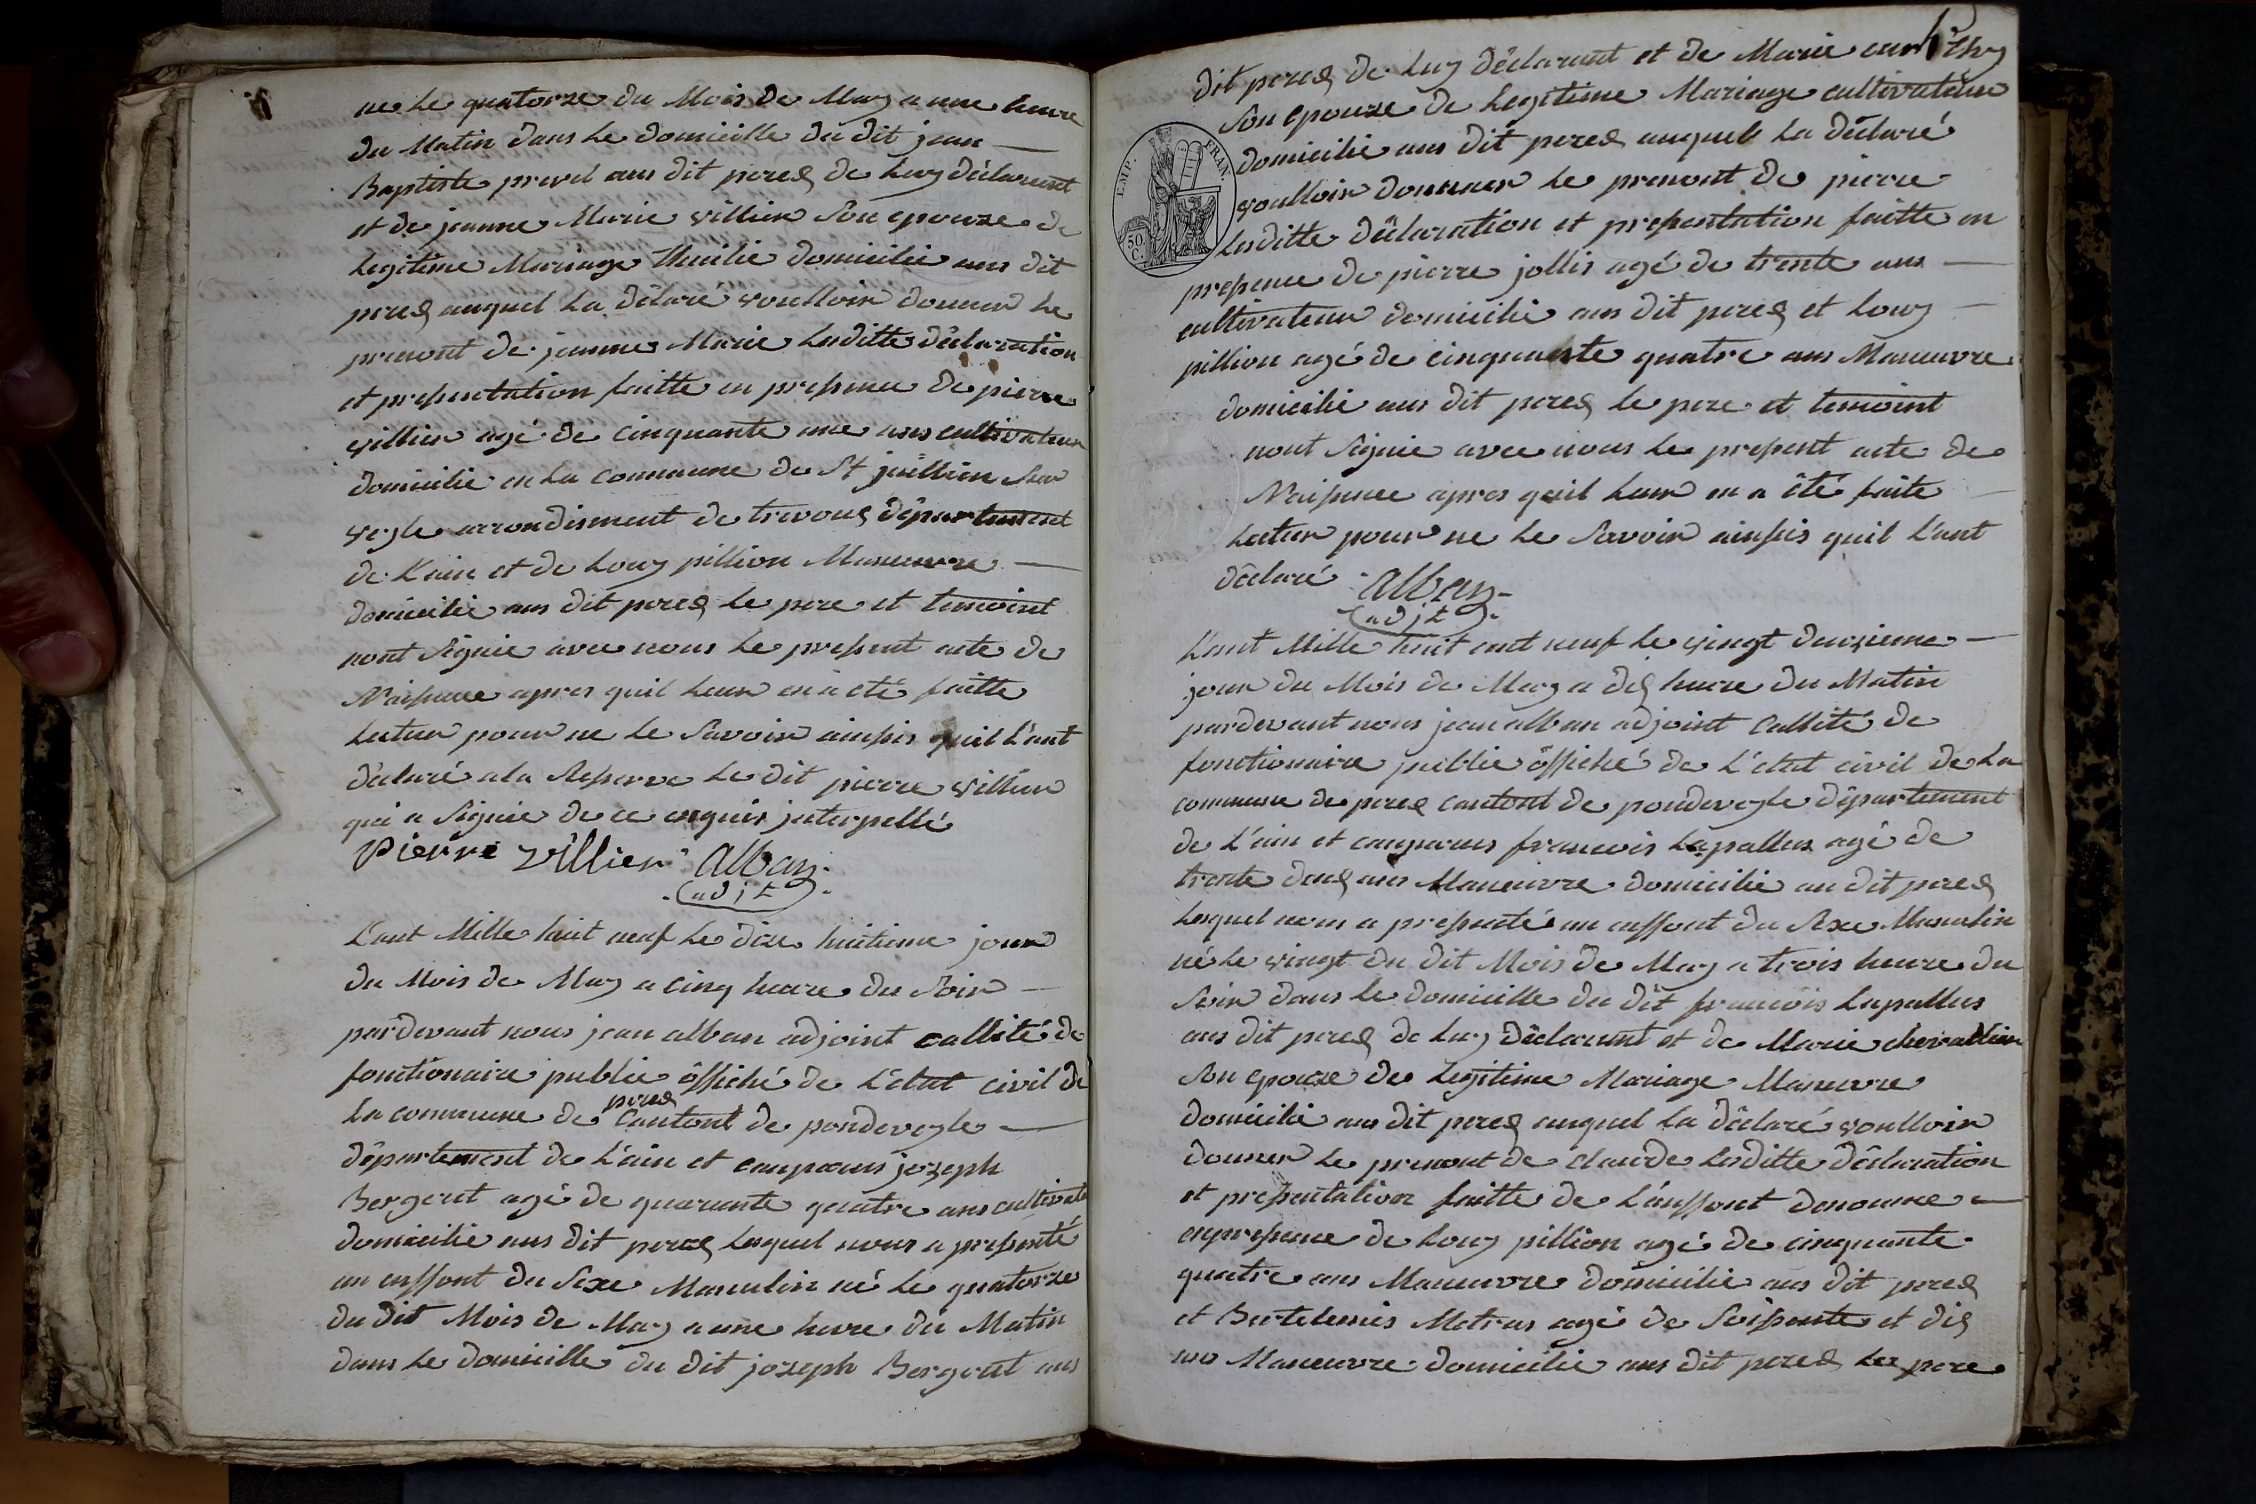 ne le quatorze du Mois de May a une heure
du Matin dans le domicille du dit jean
Baptiste prevel aus dit perex de luy déclarent
et de jeanne Marie villier son epouze de
legitime Mariage domicilie aus dit
perex auquel la délaré voulloir donner le
prenont de jeanne Marie lesditte déclaration
et presentation faitte en presence de pierre
villier agé de cinquante une ans cultivateur
domicilie en la commune de St jullien sur
veyle arrondisment de trevoux département
de l'ain et de louy pillion Maneuvre
domicilie aus dit perex le pere et temoint
nont signie avec nous le present acte de
Naisance apres quil leur en a eté faitte
lectur pour ne le savoir ainsis quil l'ont
déclaré a la Reserve le dit pierre villier
qui a signie de ce enquis interpellé
pierre villier alban
adjt
L'ant Mille huit neuf le dixe huitieme jour
du Mois de May a cinq heure du soir
pardevant nous jean alban adjoint callité de
fonctionaire publie öffiché de l'etat civil de
perex
la commune de Cantont de pondeveyle
département de l'ain et comparus jozeph
Bergerut agé de quarante quatre ans cultivat
domicilie aus dit perex lequel nous a presenté
un enffont du sexe Masculin né le quatorze
du dit Mois de May a une heure du Matin
dans le domicille du dit jozeph Bergerut aus
dit perex de luy déclarent et de Marie
son epouze de legitime Mariage cultivateur
domicilie aus dit perex auquel la déclaré
voulloir donner le prenont de pierre
lesditte déclaration et presentation faitte en
EMP. FRAN.
50
C.
presence de pierre jollis agé de trente ans
cultivateur domicilie aus dit perex et louy
pillion agé de cinquante quatre ans Maneuvre
domicilie aus dit perex le pere et temoint
nont signie avec nous le present acte de
Naisance apres quil leur en a été faite
lectur pour ne le savoir ainsis quil l'ont
déclaré alban
adjt
L'ant Mille huit cent neuf le vingt deuxieme
jour du Mois de May a dix heure du Matin
pardevant nous jean alban adjoint callité de
fonctionaire publie öffiché de l'etat civil de la
commune de perex cantont de pondeveyle département
de l'ain et comparus francois lapallus agé de
trente deux ans Maneuvre domicilie au dit perex
lequel nous a presenté un enffont du sexe Masculin
né le vingt du dit Mois de May a trois heure du
soir dans le domicille du dit francois lapallus
aus dit perex de luy déclarent et de Marie chevallier
son epouze de legitime Mariage Maneuvre
domicilie aus dit perex auquel la déclaré voulloir
donner le prenont de claude lesditte déclaration
et presentation faitte de l'anffont denomme
enpresence de louy pillion agé de cinquante
quatre ans Maneuvre domicilie aus dit perex
et Bertelemis Metras agé de soisente et dix
ans Maneuvre domicilie aus dit perex les pere